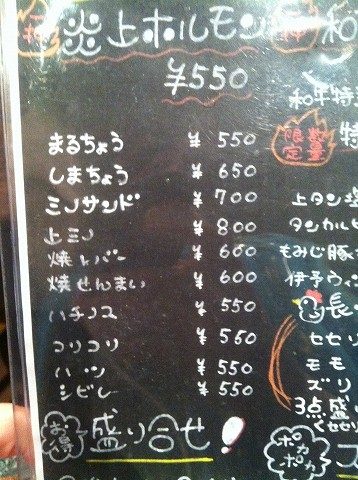 炎上ホルモン
¥550
まるちょう ¥550
しまちょう ¥650
ミノサンド ¥700
上ミノ ¥800
焼レバー ¥600
焼せんまい ¥600
ハチノス ¥550
コリコリ ¥560
ハツ ¥550
シビレ ¥550
お得 盛り合せ!
和
和牛特
数量限定 特
上タン塩
タンカルビ
もみじ豚
伊予ウィン
長
セセリ
モモ
ズリ
3点盛
くセセリ
ポカポカ